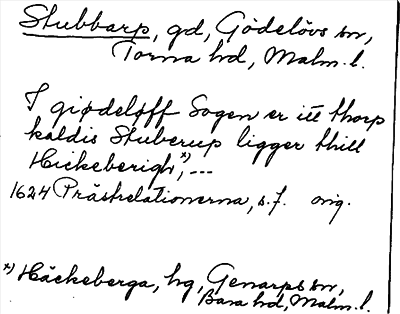 Stubbarp, gd, Gödelövs sn,
Torna hd, Malm. l.
I giødeløff Sogen er itt thorp
kaldis Stuberup ligger thill
Hickeberigh*), ...
1624 Prästrelationerna, s. 7. orig.
*) Häckeberga, hg, Genarps sn,
Bara hd, Malm. l.